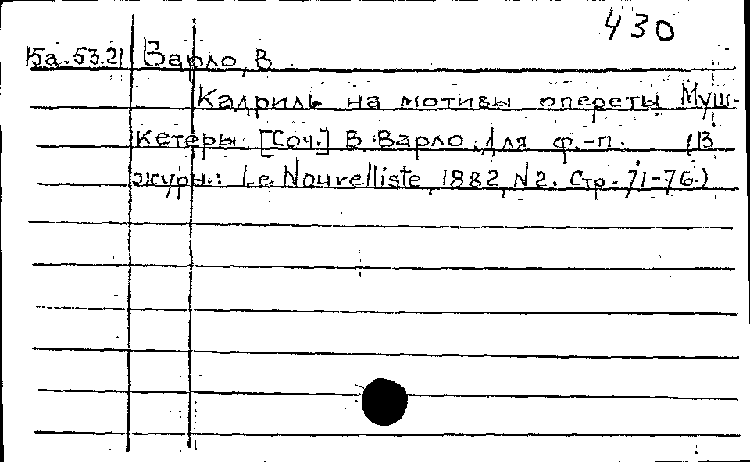 430
15а.53.21 Варло, В.
Кадриль на мотивы опереты Муш-
кетеры. [Соч.] В. Варло. Для ф.-п. (В
журн.: Le Nouvelliste, 1882, N2. Стр. 71-76.)